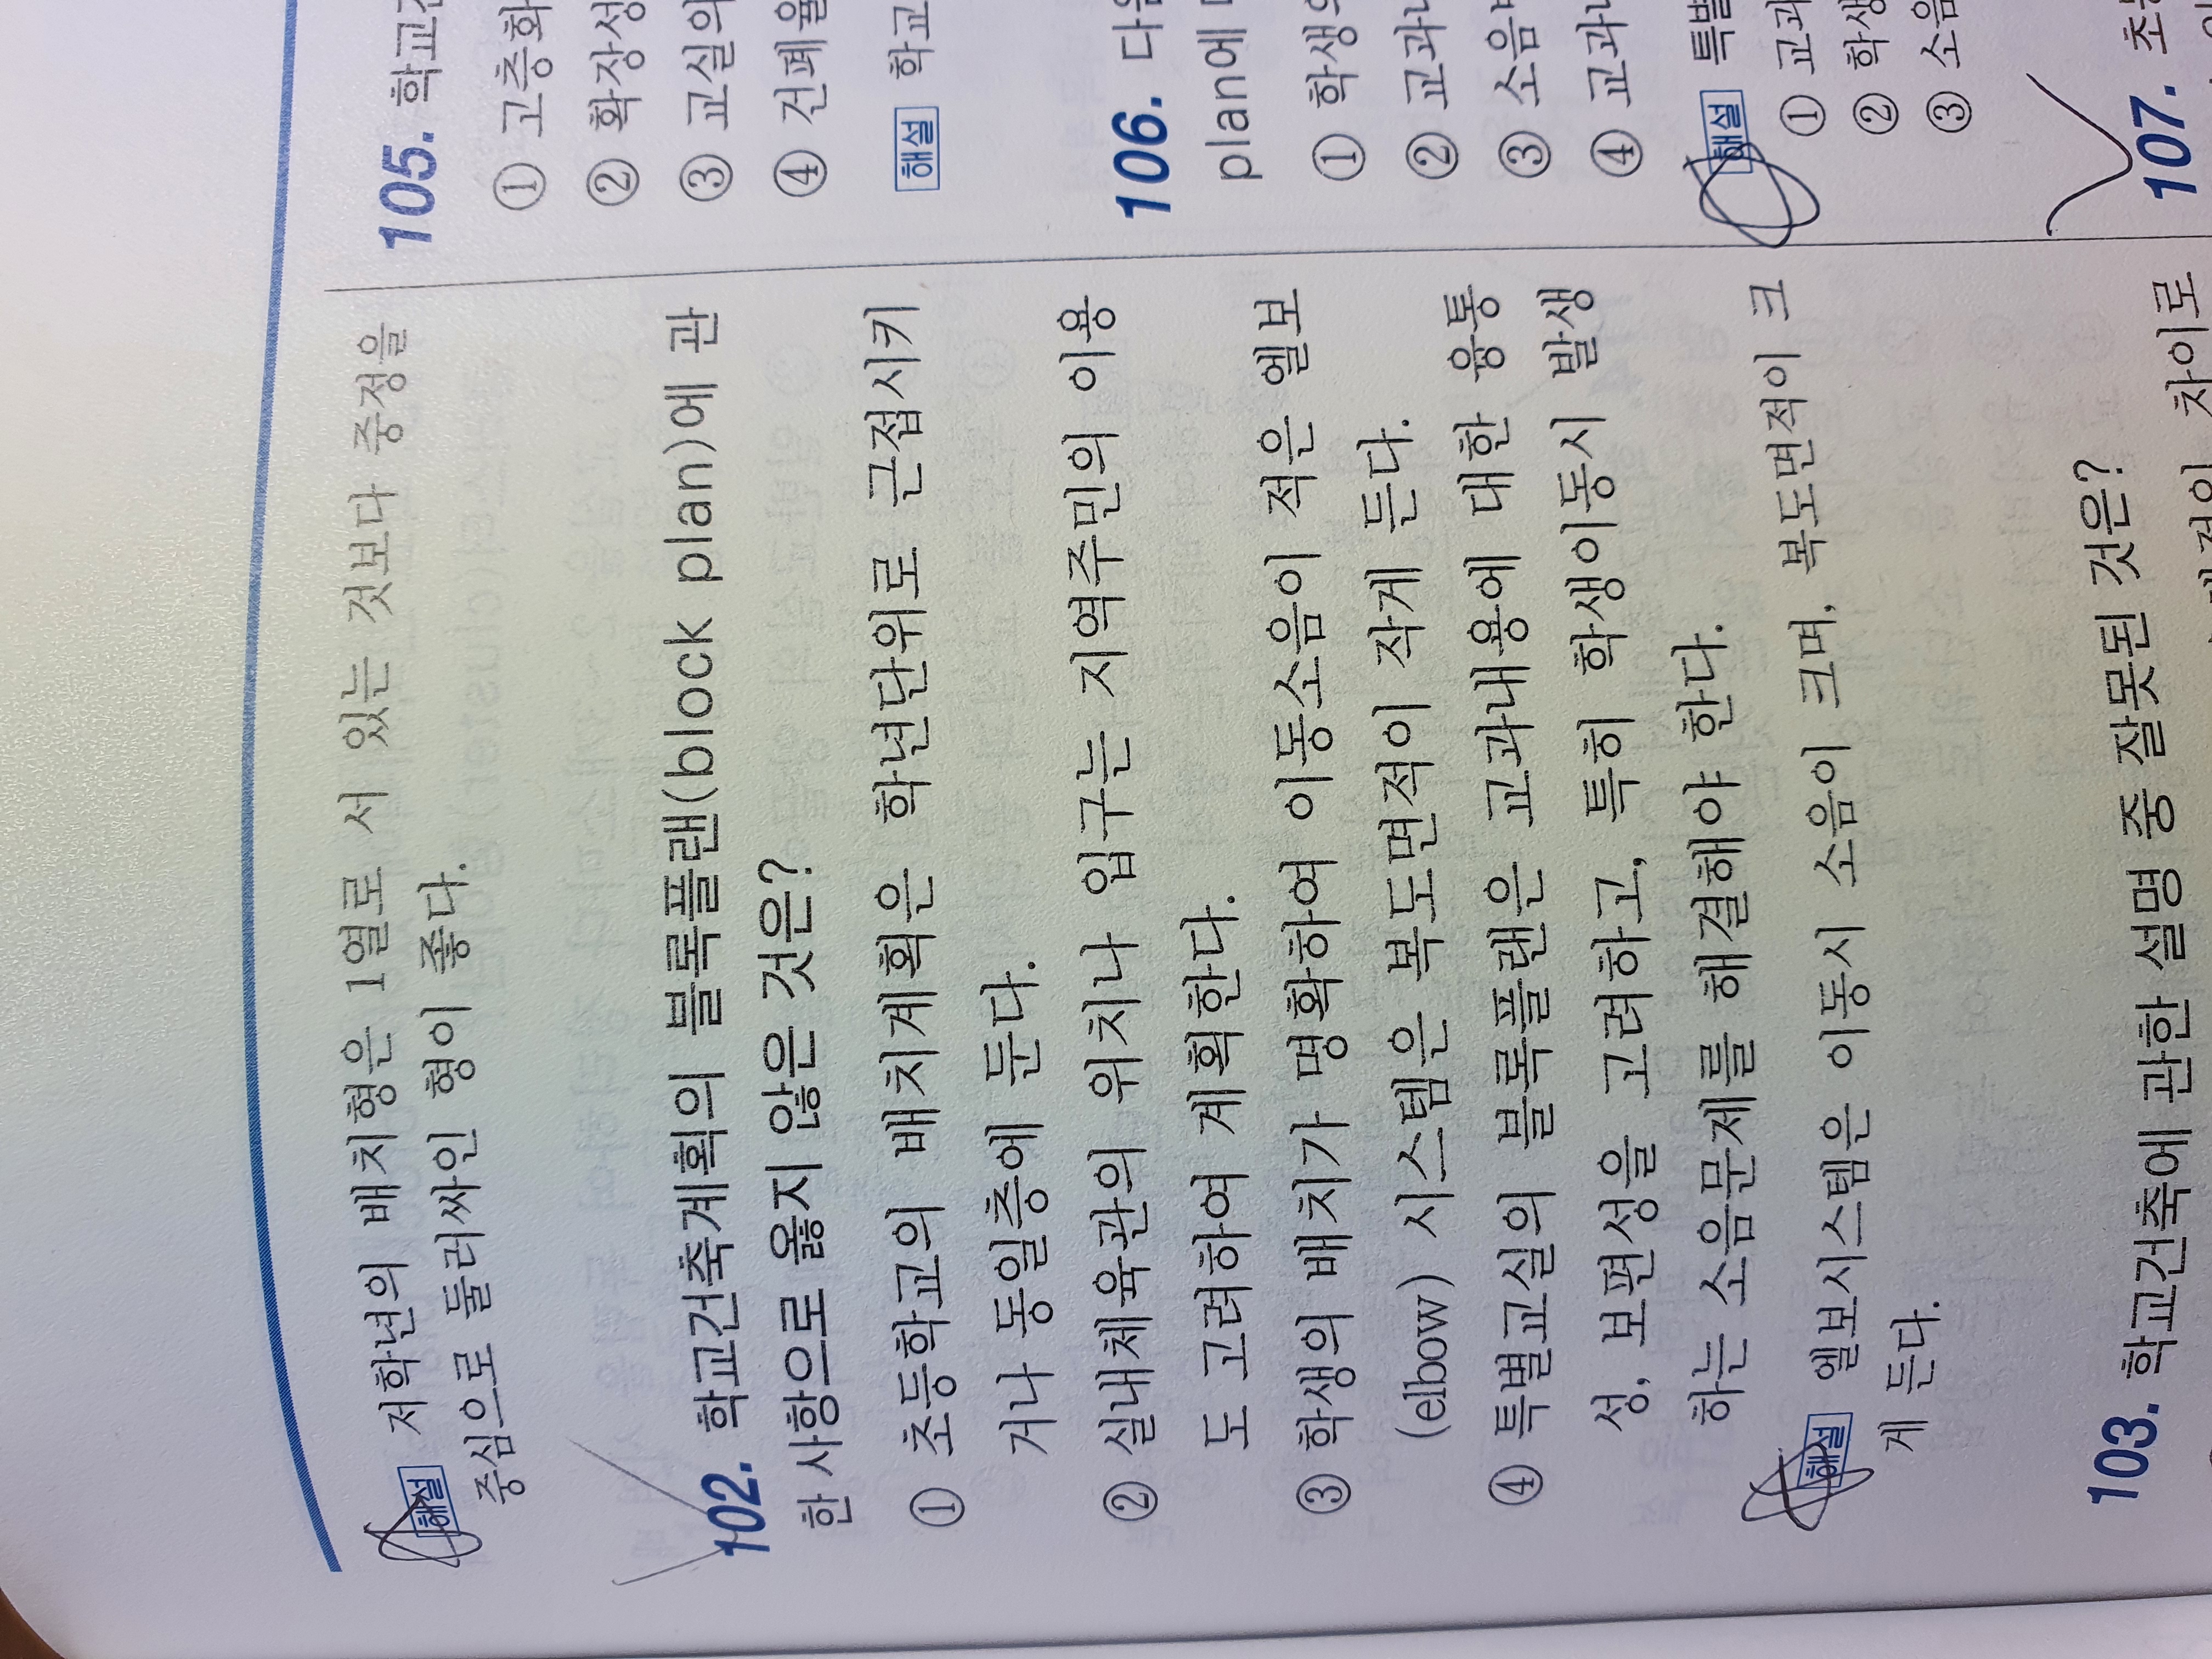 해설 저학년의 배치형은 1열로 서 있는 것보다 중정을
중심으로 둘러싸인 형이 좋다.
102. 학교건축계획의 블록플랜(block plan)에 관
한 사항으로 옳지 않은 것은?
① 초등학교의 배치계획은 학년단위로 근접시키
거나 동일층에 둔다.
② 실내체육관의 위치나 입구는 지역주민의 이용
도 고려하여 계획한다.
③ 학생의 배치가 명확하여 이동소음이 적은 엘보
(elbow) 시스템은 복도면적이 작게 든다.
④ 특별교실의 블록플랜은 교과내용에 대한 융통
성, 보편성을 고려하고, 특히 학생이동시 발생
하는 소음문제를 해결해야 한다.
해설 엘보시스템은 이동시 소음이 크며, 복도면적이 크
게 든다.
103. 학교건축에 관한 설명 중 잘못된 것은?
차이로
105. 학교건
① 고층화
② 확장성
③ 교실의
④ 건폐율
해설 학교
106. 다음
plan에
① 학생의
② 교과
③ 소음
④ 교과
해설 특별
① 교과
② 학생
③ 소음
107. 초